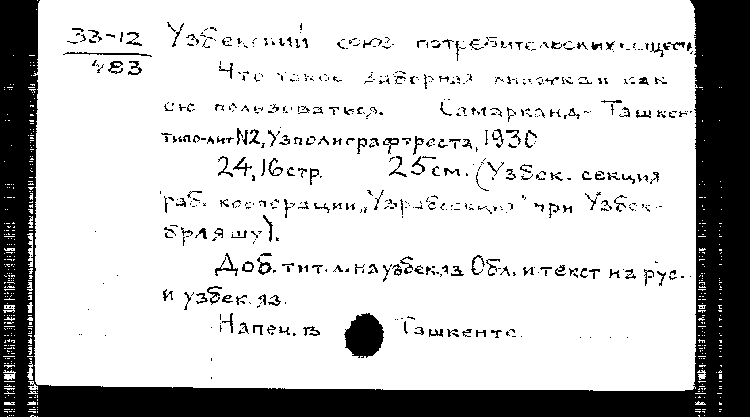 33-12
483
Узбекский союз потребительских обществ.
Что такое заборная книжка и как
ею пользоваться. Самарканд-Ташкент
типо-лит N2, Узполиграфтреста, 1930
24, 16 стр. 25 см. (Узбек. секция
раб. кооперации "Узрабсекция" при Узбек-
бирляшу).
Доб. тит. л. на узбек. яз. Обл. и текст на рус.
и узбек. яз.
Напеч. в Ташкенте.